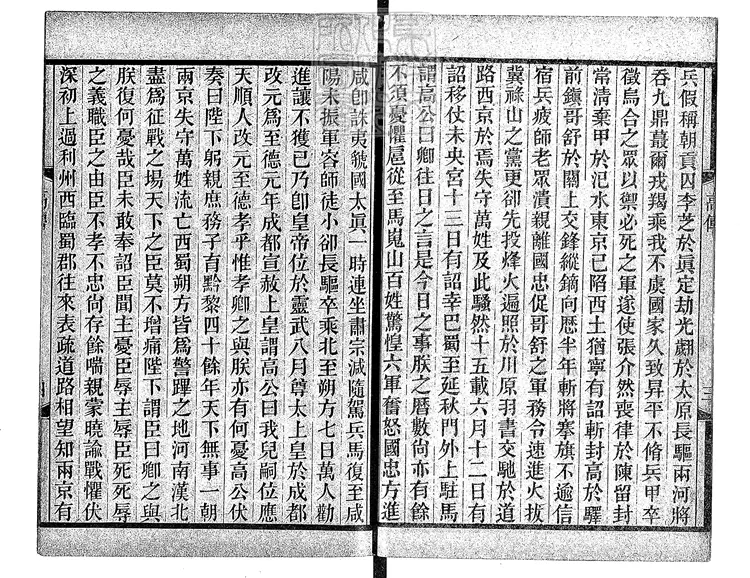 兵假稱朝貢囚李芝於眞定劫光翽於太原長驅兩河將
吞九鼎蕞爾戎羯乘我不虞國家久致昇平不脩兵甲卒
徵烏合之眾以禦必死之軍遂使張介然喪律於陳留封
常清棄甲於汜水東京已陷西土猶寧有詔斬封高於驛
前鎭哥舒於關上交鋒縱鏑向歷半年斬將搴旗不逾信
宿兵疲師老眾潰親離國忠促哥舒之軍務令速進火拔
冀祿山之黨更卻先投烽火遍照於川原羽書交馳於道
路西京於焉失守萬姓及此騷然十五載六月十二日有
詔移仗未央宮十三日有詔幸巴蜀至延秋門外上駐馬
謂高公曰卿往日之言是今日之事朕之曆數尚亦有餘
不須憂懼扈從至馬嵬山百姓驚惶六軍奮怒國忠方進
咸卽誅夷虢國太眞一時連坐肅宗減隨駕兵馬復至咸
陽未振軍容師徒小卻長驅卒乘北至朔方七日萬人勸
進讓不獲已乃卽皇帝位於靈武八月尊太上皇於成都
改元爲至德元年成都宣赦上皇謂高公曰我兒嗣位應
天順人改元至德孝乎惟孝卿之與朕亦有何憂高公伏
奏曰陛下躬親庶務子育黔黎四十餘年天下無事一朝
兩京失守萬姓流亡西蜀朔方皆爲警蹕之地河南漢北
盡爲征戰之場天下之臣莫不增痛陛下謂臣曰卿之與
朕復何憂哉臣未敢奉詔臣聞主憂臣辱主辱臣死死辱
之義職臣之由臣不孝不忠尚存餘喘親蒙曉諭戰懼伏
深初上過利州西臨蜀郡往來表疏道路相望知兩京有